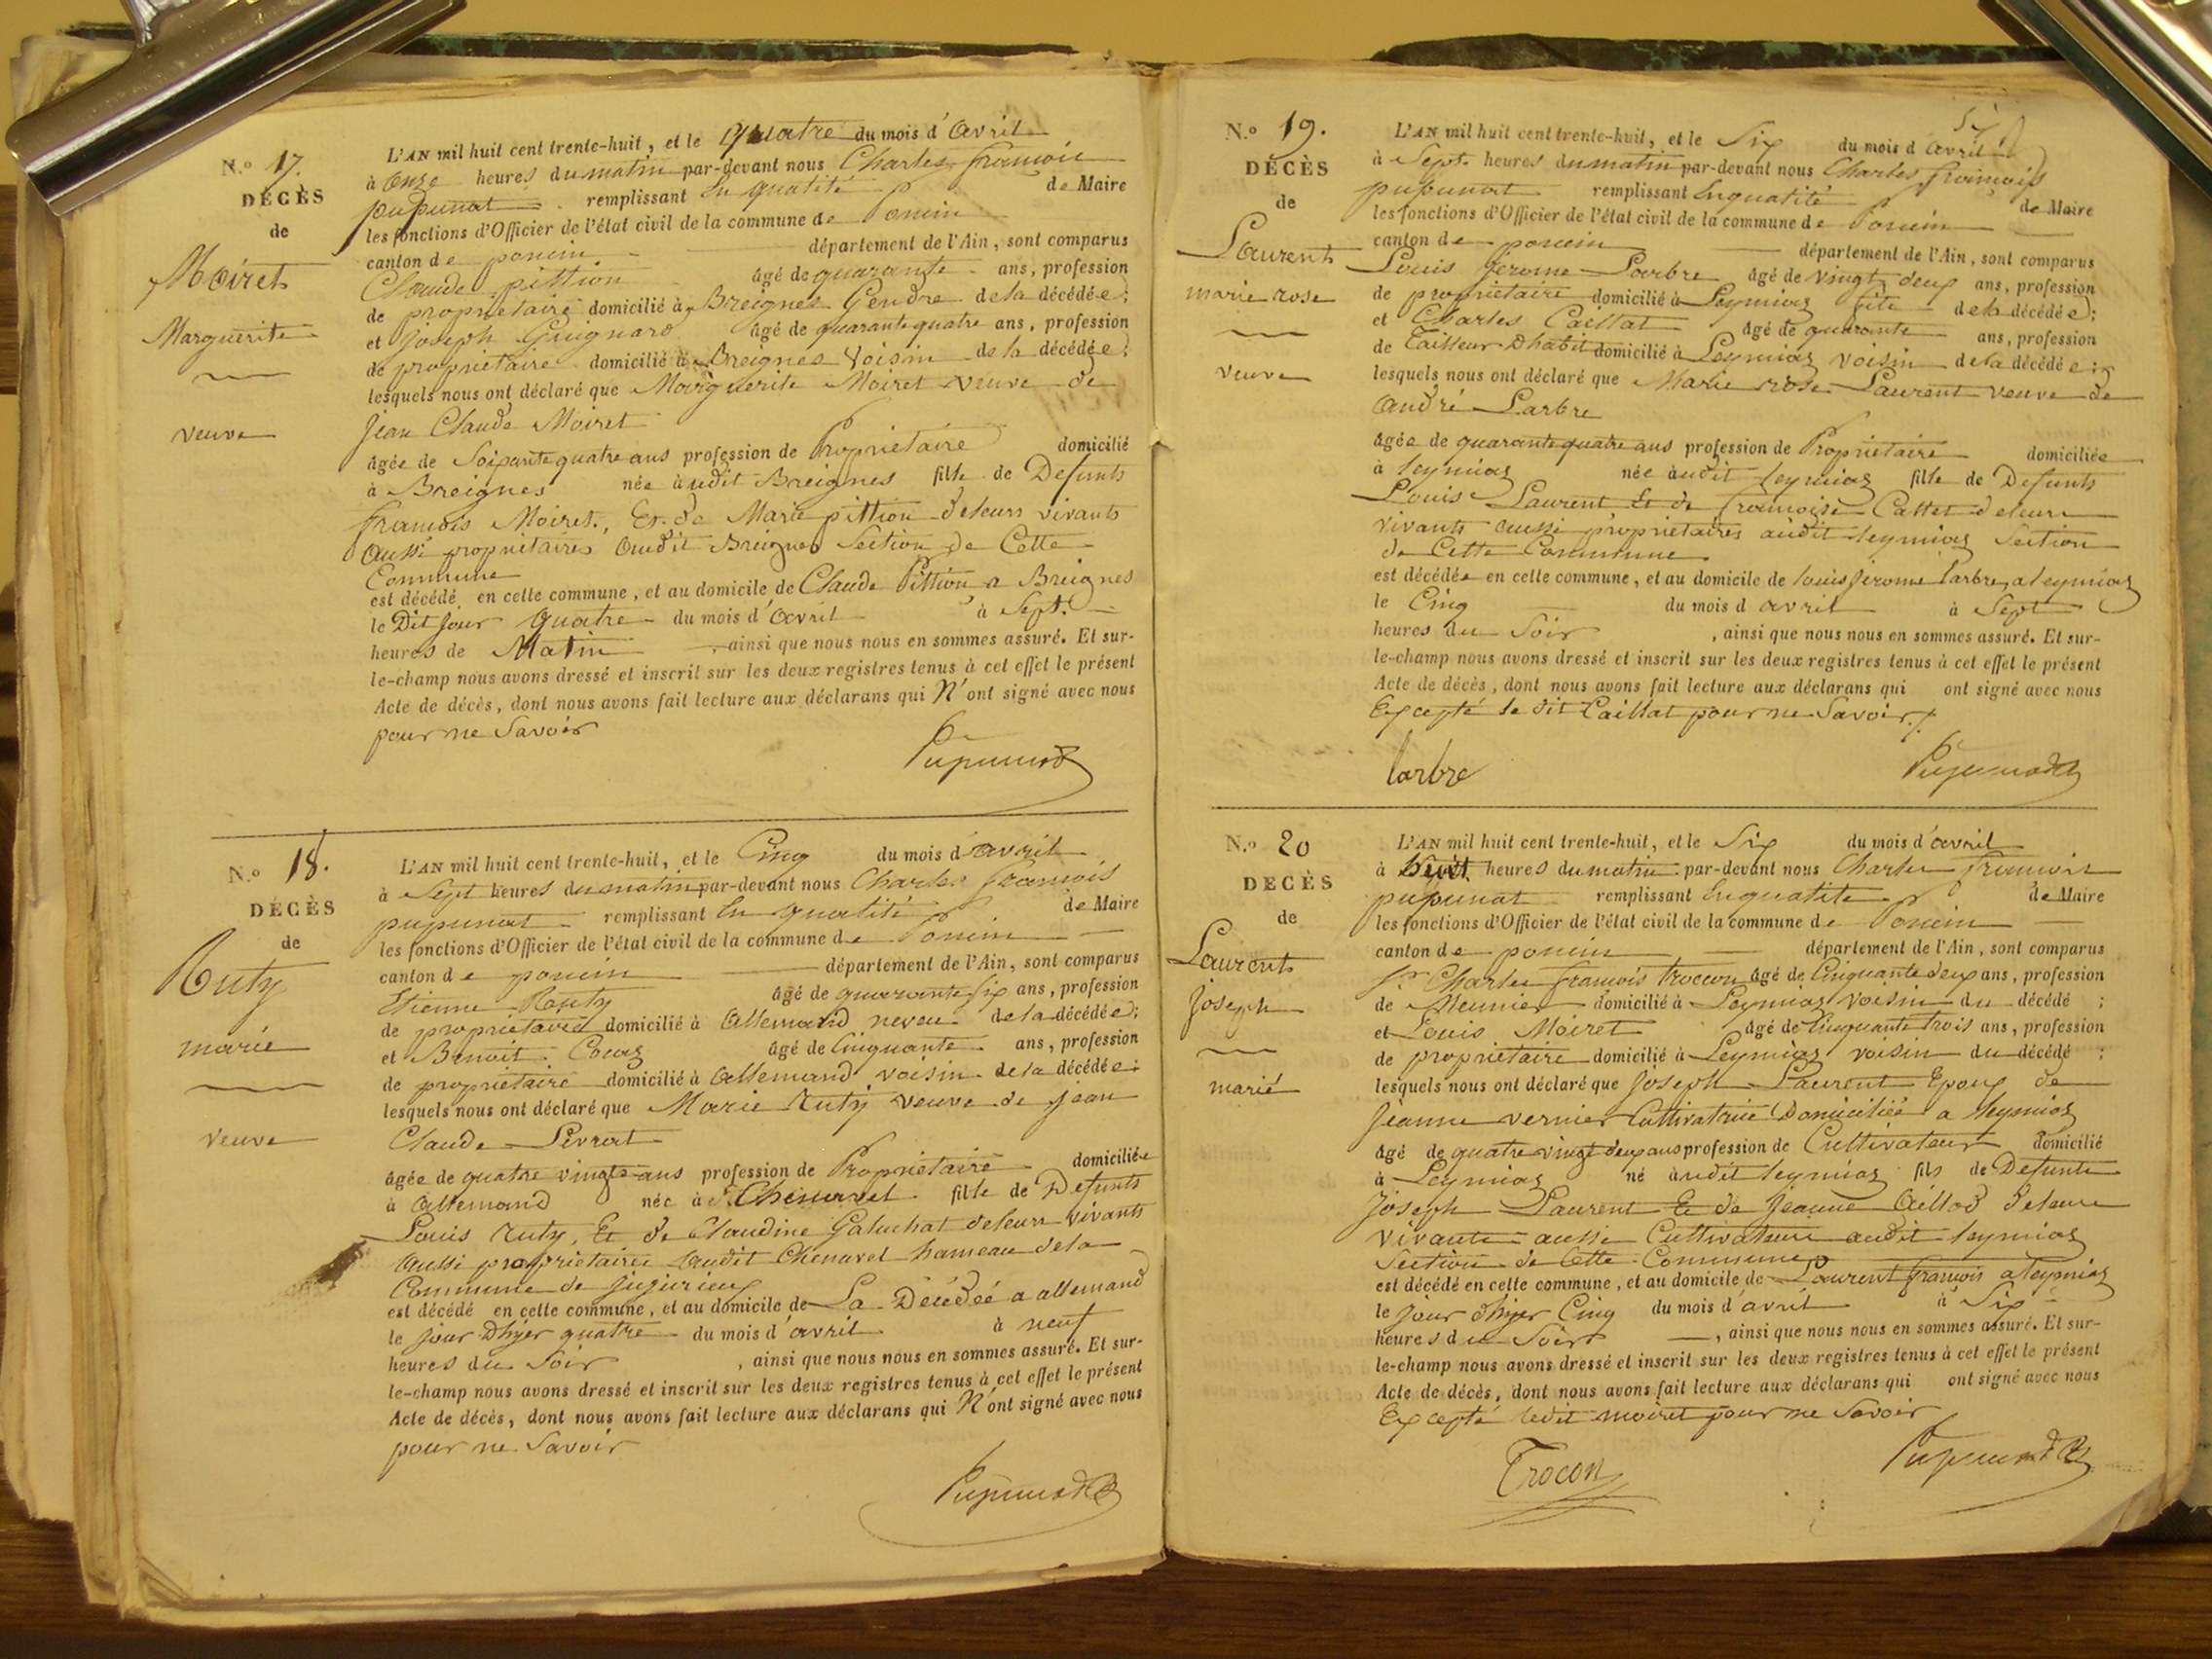 N.o 17.
DÉCÈS
de
Moiret
Marguerite
veuve
L'AN mil huit cent trente-huit, et le quatre du mois d'avril
à onze heures du matin par-devant nous Charles françois
pupunat remplissant En qualité de Maire
les fonctions d'Officier de l'état civil de la commune de Poncin
canton de poncin département de l'Ain, sont comparus
Claude pittion âgé de quarante ans, profession
de proprietaire domicilié à Breignes Gendre de la décédée;
et Joseph Guignard âgé de quarante quatre ans, profession
de proprietaire domicilié à Breignes Voisin de la décédée;
lesquels nous ont déclaré que Marguerite Moiret veuve de
Jean Claude Moiret
âgée de Soixante quatre ans profession de Proprietaire domicilié
à Breignes née audit Breignes fille de Defunts
françois Moiret, Et de Marie pittion de leurs vivants
aussi proprietaires audit Breignes Section de Cette
Commune
est décédé en cette commune, et au domicile de Claude Pittion a Breignes
le Dit Jour quatre du mois d'avril à Sept
heures de Matin, ainsi que nous nous en sommes assuré. Et sur-
le-champ nous avons dressé et inscrit sur les deux registres tenus à cet effet le présent
Acte de décès, dont nous avons fait lecture aux déclarans qui N'ont signé avec nous
pour ne Savoir
Pupunat
N.o 18.
DÉCÈS
de
Ruty
marie
veuve
L'AN mil huit cent trente-huit, et le Cinq du mois d'avril
à Sept heures du matin par-devant nous Charles françois
pupunat remplissant En qualité de Maire
les fonctions d'Officier de l'état civil de la commune de Poncin
canton de poncin département de l'Ain, sont comparus
Etienne Routy âgé de quarante six ans, profession
de proprietaire domicilié à Allemand neveu de la décédée;
et Benoit Couaz âgé de Cinquante ans, profession
de proprietaire domicilié à Allemand voisin de la décédée;
lesquels nous ont déclaré que Marie Ruty veuve de Jean
Claude Livrat
âgée de quatre vingts ans profession de Proprietaire domiciliée
à Allemand née à Chenavel fille de Defunts
Louis Ruty, Et de Claudine Galuchat de leurs vivants
aussi proprietaires audit Chenavel hameau de la
Commune de jujurieux
est décédé en cette commune, et au domicile de La Décédée a allemand
le jour D'hyer quatre du mois d'avril à neuf
heures du Soir, ainsi que nous nous en sommes assuré. Et sur-
le-champ nous avons dressé et inscrit sur les deux registres tenus à cet effet le présent
Acte de décès, dont nous avons fait lecture aux déclarans qui N'ont signé avec nous
pour ne Savoir
Pupunat
N.o 19.
DÉCÈS
de
Laurent
marie rose
veuve
L'AN mil huit cent trente-huit, et le Six du mois d'avril
à Sept heures du matin par-devant nous Charles françois
pupunat remplissant En qualité de Maire
les fonctions d'Officier de l'état civil de la commune de Poncin
canton de poncin département de l'Ain, sont comparus
Louis Jerome Larbre âgé de vingt deux ans, profession
de proprietaire domicilié à Leymiaz fils de la décédée;
et Charles Caillat âgé de quarante ans, profession
de Tailleur D'habit domicilié à Leymiaz voisin de la décédée;
lesquels nous ont déclaré que Marie rose Laurent veuve de
André Larbre
âgée de quarante quatre ans profession de Proprietaire domiciliée
à leymiaz née audit leymiaz fille de Defunts
Louis Laurent Et de françoise Cattet de leurs
vivants aussi proprietaires audit leymiaz Section
de Cette Commune
est décédée en cette commune, et au domicile de louis Jerome Larbre, a leymiaz
le Cinq du mois d avril à Sept
heures du Soir, ainsi que nous nous en sommes assuré. Et sur-
le-champ nous avons dressé et inscrit sur les deux registres tenus à cet effet le présent
Acte de décès, dont nous avons fait lecture aux déclarans qui ont signé avec nous
Excepté le dit Caillat pour ne Savoir
larbre Pupunat
N.o 20
DÉCÈS
de
Laurent
joseph
marié
L'AN mil huit cent trente-huit, et le Six du mois d'avril
à huit heures du matin par-devant nous Charles françois
pupunat remplissant En qualité de Maire
les fonctions d'Officier de l'état civil de la commune de Poncin
canton de poncin département de l'Ain, sont comparus
Sr Charles françois Troccon âgé de Cinquante deux ans, profession
de Meunier domicilié à Leymiaz voisin du décédé;
et Louis Moiret âgé de Cinquante Trois ans, profession
de proprietaire domicilié à Leymiaz voisin du décédé;
lesquels nous ont déclaré que joseph Laurent Epoux de
Jeanne vernier Cultivatrice Domiciliée a leymiaz
âgé de quatre vingt deux ans profession de Cultivateur domicilié
à Leymiaz né audit leymiaz fils de Defunts
joseph Laurent Et de Jeanne Caillod de leurs
vivants aussi Cultivateurs audit leymiaz
Section de Cette Commune
est décédé en cette commune, et au domicile de Laurent françois a leymiaz
le jour d'hyer Cinq du mois d'avril à Six
heures du Soir, ainsi que nous nous en sommes assuré. Et sur-
le-champ nous avons dressé et inscrit sur les deux registres tenus à cet effet le présent
Acte de décès, dont nous avons fait lecture aux déclarans qui ont signé avec nous
Excepté ledit moiret pour ne Savoir
Trocon Pupunat